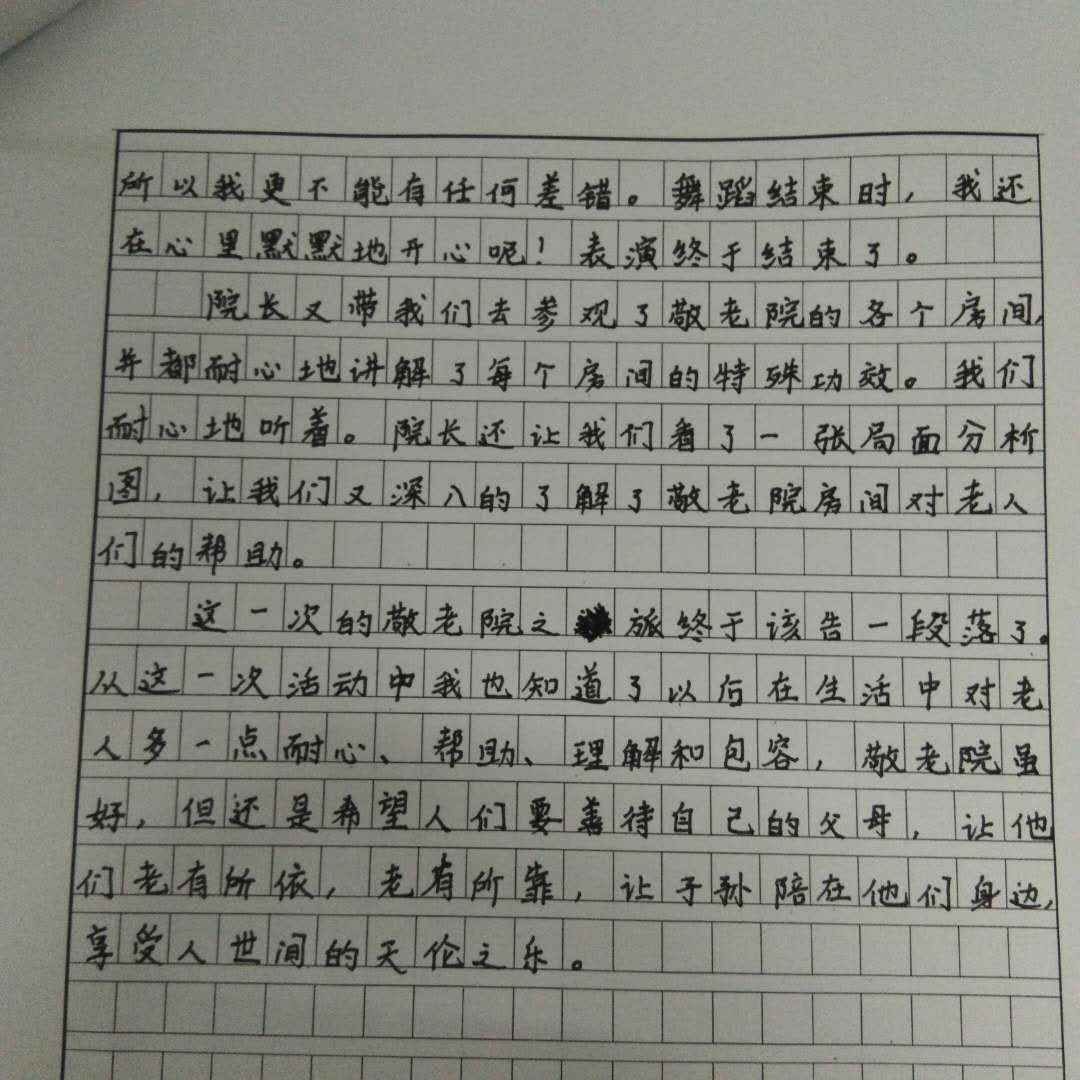 所以我更不能有任何差错。舞蹈结束时，我还
在心里默默地开心呢！表演终于结束了。
院长又带我们去参观了敬老院的各个房间，
并都耐心地讲解了每个房间的特殊功效。我们
耐心地听着。院长还让我们看了一张局面分析
图，让我们又深入的了解了敬老院房间对老人
们的帮助。
这一次的敬老院之旅终于该告一段落了。
从这一次活动中我也知道了以后在生活中对老
人多一点耐心、帮助、理解和包容，敬老院虽
好，但还是希望人们要善待自己的父母，让他
们老有所依，老有所靠，让子孙陪在他们身边，
享受人世间的天伦之乐。